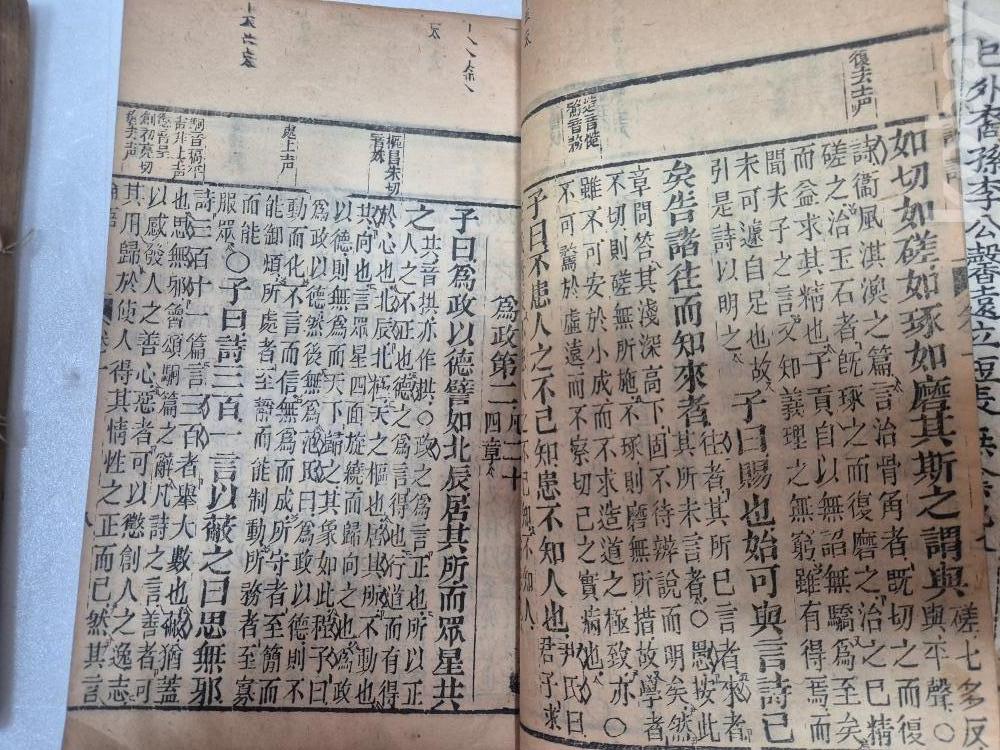 復去声
如切如磋如琢如磨其斯之謂與磋七多反
與平聲○
詩衞風淇澳之篇言治骨角者既切之而復
磋之治玉石者既琢之而復磨之治之已精
而益求其精也子貢自以無諂無驕爲至矣
聞夫子之言又知義理之無窮雖有得焉而
未可遽自足也故
引是詩以明之
子曰賜也始可與言詩已
矣告諸往而知來者
往者其所已言者來者
其所未言者○愚按此
章問答其淺深高下固不待辨說而明矣然
不切則磋無所施不琢則磨無所措故學者
雖不可安於小成而不求造道之極致亦○
不可騖於虛遠而不察切己之實病也
子曰不患人之不己知患不知人也
尹氏曰
君子求
爲政第二
凡二十
四章
樞昌朱切
子曰爲政以德譬如北辰居其所而眾星共
之
共音拱亦作拱○政之爲言正也所以正
人之不正也德之爲言得也行道而有得
於心也北辰北極天之樞也居其所不動也
共向也言眾星四面旋繞而歸向之也爲政
以德則無爲而天下歸之其象如此程子曰
爲政以德然後無爲范氏曰爲政以德則不
動而化不言而信無爲而成所守者至簡而
能御煩所處者至靜而能制動所務者至寡
而能
服眾
○子曰詩三百一言以蔽之曰思無邪
處上声
詩三百十一篇言三百者舉大數也蔽猶蓋
也思無邪魯頌駉篇之辭凡詩之言善者可
以感發人之善心惡者可以懲創人之逸志
其用歸於使人得其情性之正而已然其言